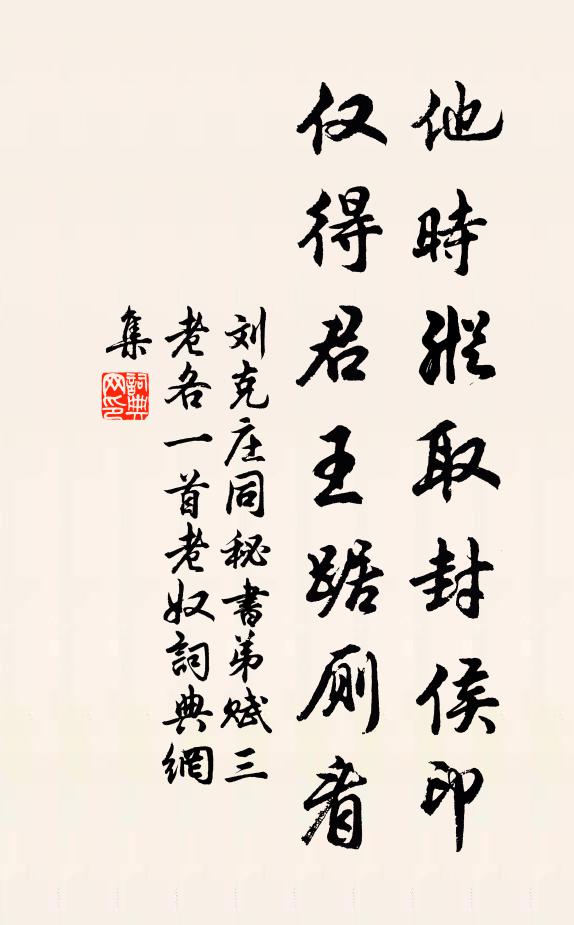 他時縱取封侯印
仅得君王踞厕看
刘克庄同秘書弟賦三
老各一首老奴詞典網
集
詞典
网印